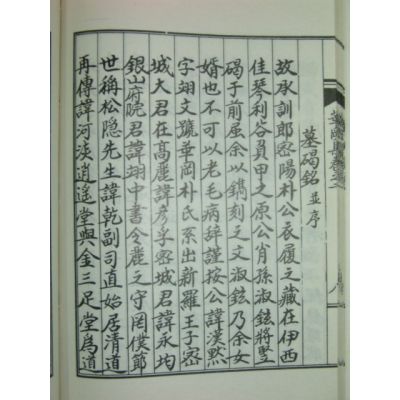 墓碣銘 並序
故承訓郎密陽朴公衣履之藏在伊西
佳琴利谷負甲之原公肖孫淑鉉將竪
碣于前屈余以鐫刻之文淑鉉乃余女
婿也不可以老毛病辞謹按公諱漢黙
字翊文號華岡朴氏系出新羅王子密
城大君在高麗諱彦孚密城君諱永均
銀山府院君諱翊中書令麗之守罔僕節
世稱松隐先生諱乾副司直始居清道
再傳諱河淡逍遥堂與金三足堂為道